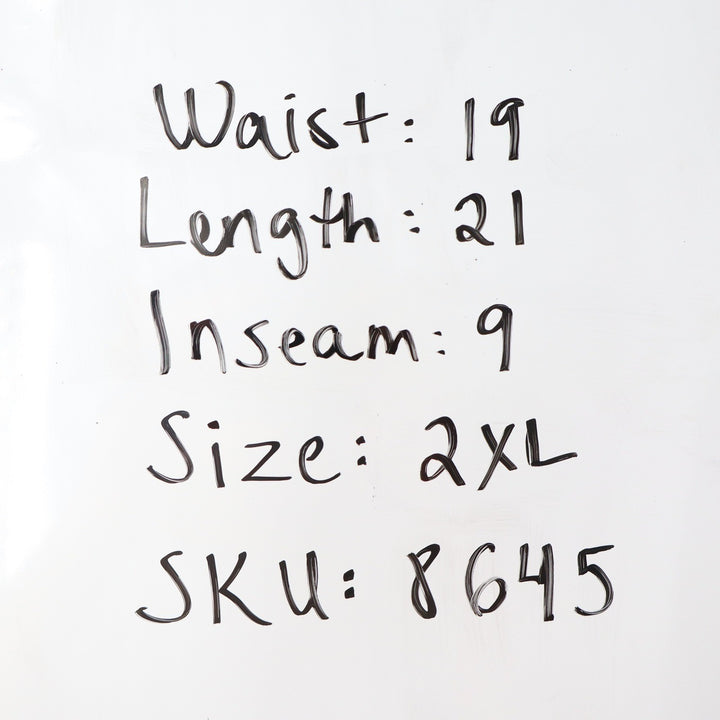 Waist: 19
Length: 21
Inseam: 9
Size: 2XL
SKU: 8645